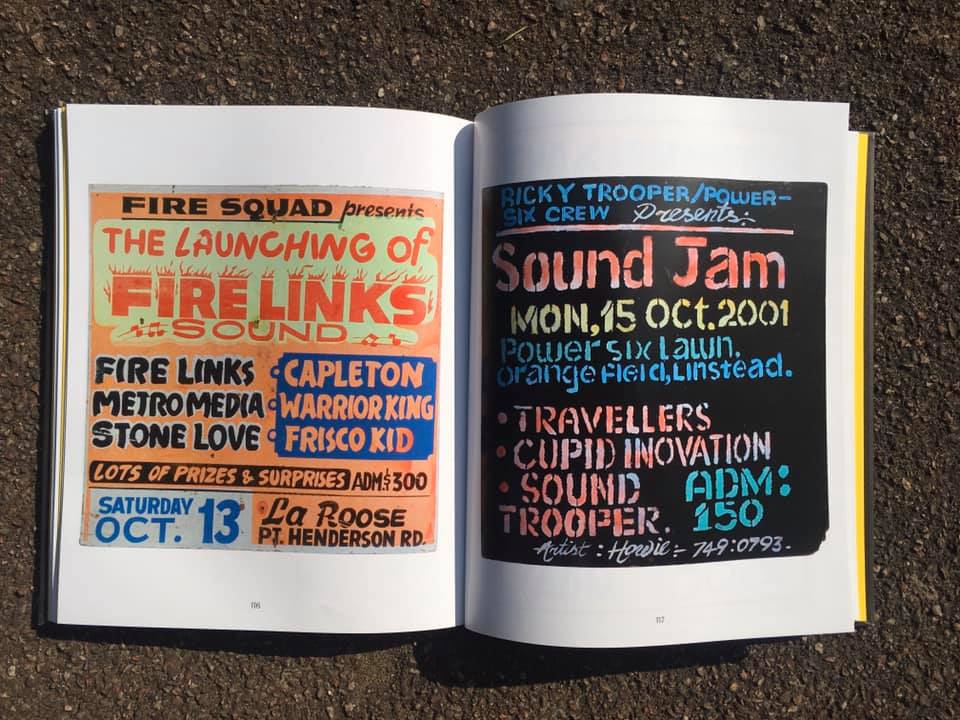 FIRE SQUAD presents
THE LAUNCHING Of
FIRE LINKS
SOUND
FIRE LINKS
METRO MEDIA
STONE LOVE
CAPLETON
WARRIOR KING
FRISCO KID
LOTS OF PRIZES & SURPRISES ADM: $300
SATURDAY
OCT. 13
La ROOSE
PT. HENDERSON RD.
116
RICKY TROOPER/POWER-
SIX CREW Presents:-
Sound Jam
MON, 15 OCT. 2001
Power six lawn.
orange field, Linstead.
• TRAVELLERS
• CUPID INOVATION
• SOUND
TROOPER.
ADM:
150
Artist : Howie :- 749:0793.-
117